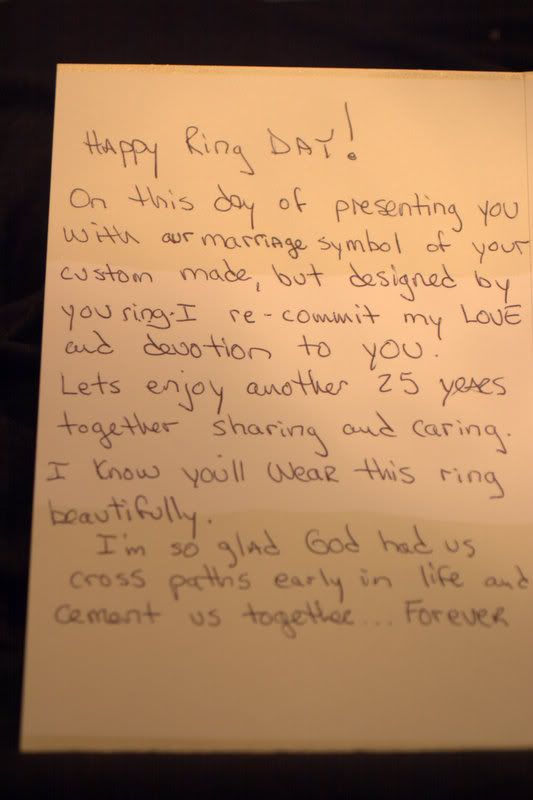 HAPPY Ring DAY!
On this day of presenting you
with our marriage symbol of your
custom made, but designed by
you ring. I re-commit my LOVE
and devotion to you.
Lets enjoy another 25 years
together sharing and caring.
I know you'll WEAR this ring
beautifully.
I'm so glad God had us
cross paths early in life and
cement us together... Forever